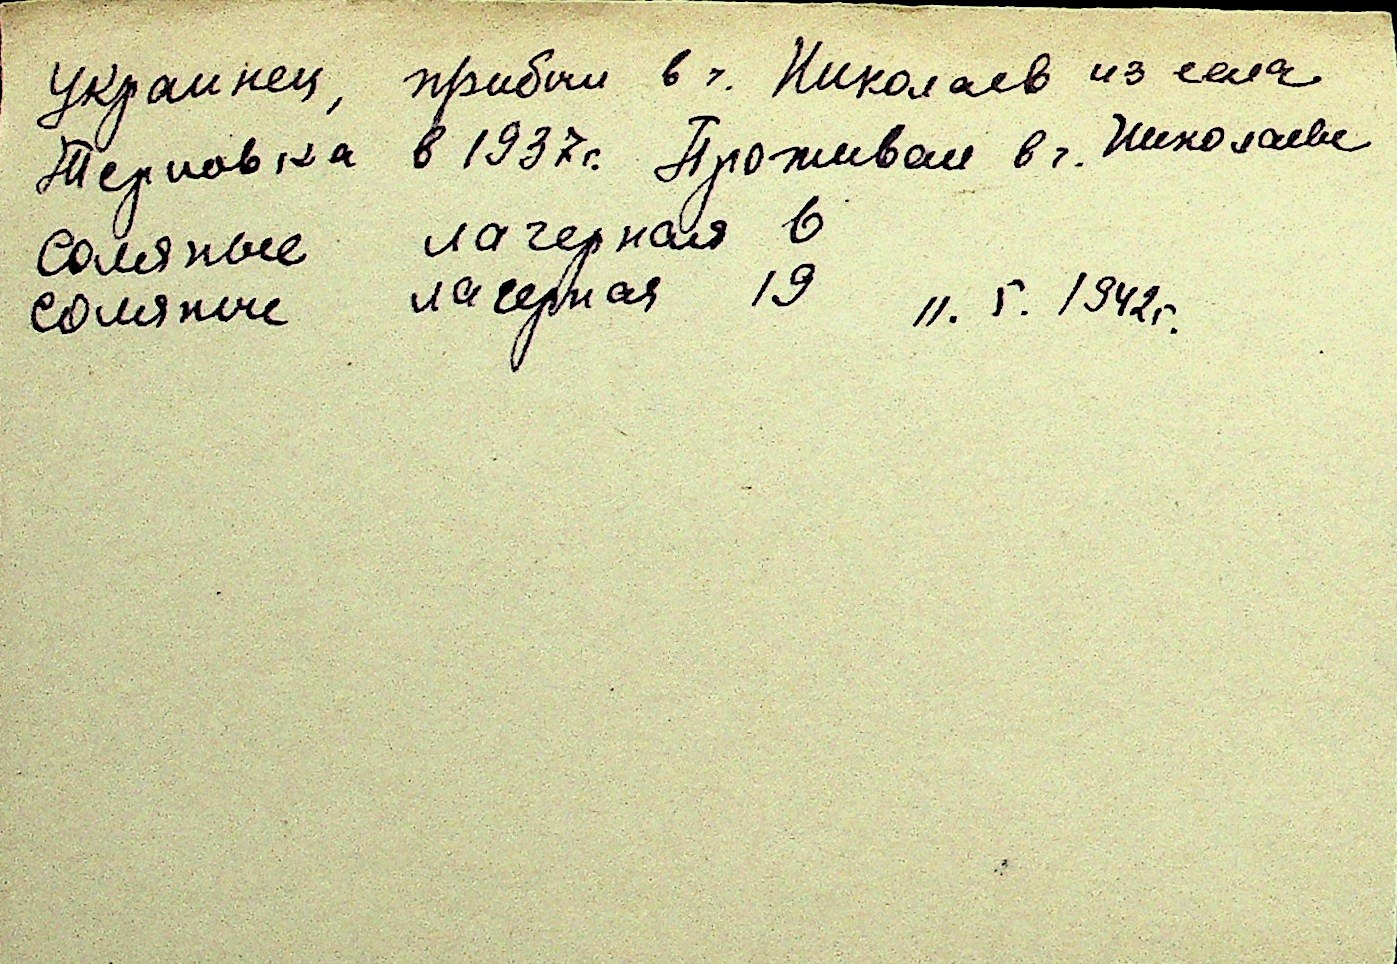 Украинец, прибыл в г. Николаев из села
Терновка в 1937г. Проживал в г. Николаеве
Соляные лагерная 6
Соляные лагерная 19 11. 5. 1942г.